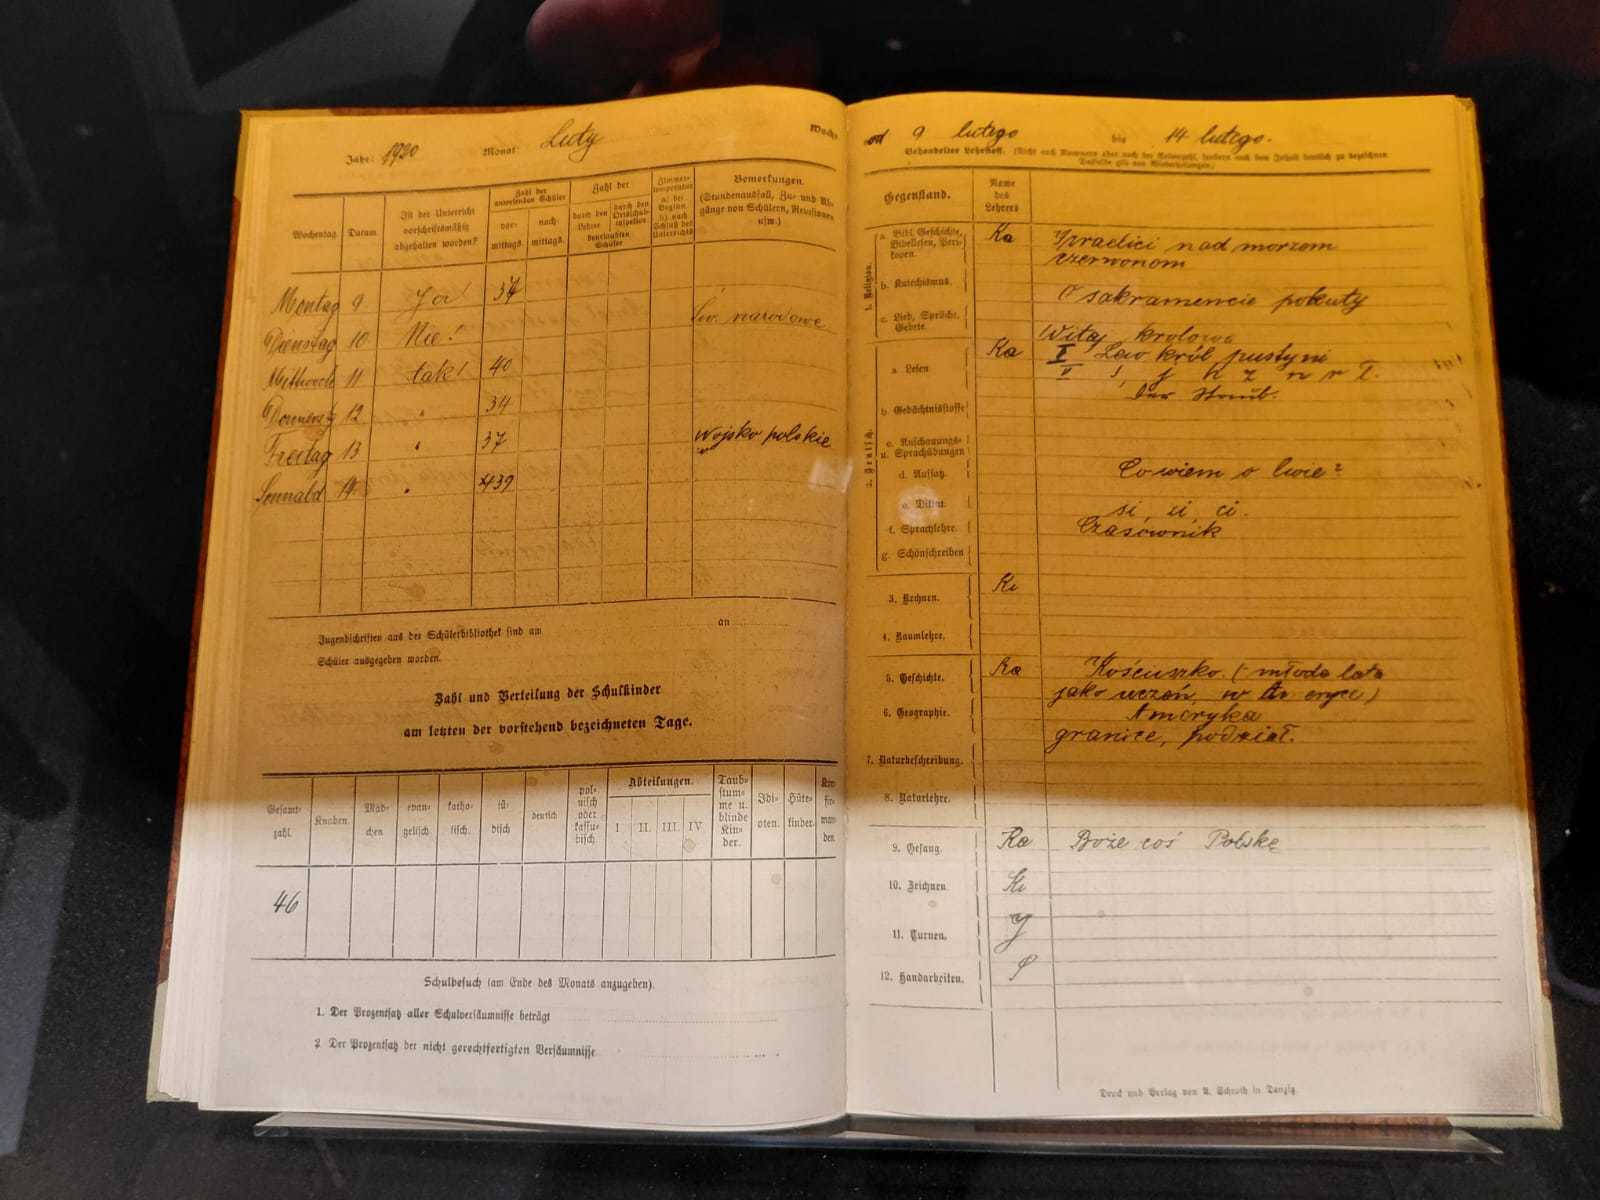 Jahr: 1920 Monat: Luty Woche
Wochentag.
Datum.
Ist der Unterricht
vorschriftsmäßig
abgehalten worden?
Zahl der
anwesenden Schüler
vor-
mittags.
nach-
mittags.
Zahl der
durch den
Lehrer
durch den
Ortsschul-
inspektor
beurlaubten
Schüler
Zimmer-
temperatur
a) bei
Beginn,
b) nach
Schluß des
Unterrichts
Bemerkungen.
(Stundenausfall, Zu- und Ab-
gänge von Schülern, Revisionen
usw.)
Montag 9 Ja! 37
Dienstag 10 Nie! Św. narodowe
Mittwoch 11 tak! 40
Donnerstg 12 " 34
Freitag 13 " 37 Wojsko polskie
Sonnabd 14 " 39
Jugendschriften aus der Schülerbibliothek sind am an
Schüler ausgegeben worden.
Zahl und Verteilung der Schulkinder
am letzten der vorstehend bezeichneten Tage.
Gesamt-
zahl.
Knaben.
Mäd-
chen.
evan-
gelisch.
katho-
lisch.
jü-
disch
deutsch
pol-
nisch
oder
kassu-
bisch.
Abteilungen.
I II. III. IV
Taub-
stum-
me u.
blinde
Kin-
der.
Idi-
oten.
Hüte-
kinder.
Kon-
fir-
man-
den.
46
Schulbesuch (am Ende des Monats anzugeben).
1. Der Prozentsatz aller Schulversäumnisse beträgt
2. Der Prozentsatz der nicht gerechtfertigten Versäumnisse
od 9 lutego bis 14 lutego.
Behandelter Lehrstoff. (Nicht nach Nummern oder nach der Seitenzahl, sondern nach dem Inhalt deutlich zu bezeichnen
Dasselbe gilt von Wiederholungen.)
Gegenstand.
Name
des
Lehrers
1. Religion.
a. Bibl. Geschichte,
Bibellesen, Peri-
kopen.
Ka Izraelici nad morzem
czerwonem
b. Katechismus. O sakramencie pokuty
c. Lied, Sprüche,
Gebete.
Witaj krolowo
2. Deutsch.
a. Lesen Ka I Lew król pustyni
II j h z n r t.
b. Gedächtnisstoffe
c. Anschauungs-
u. Sprachübungen
d. Aufsatz. Co wiem o lwie?
e. Diktat. si, zi ci.
f. Sprachlehre. Czasównik
g. Schönschreiben
3. Rechnen. Ki
4. Raumlehre.
5. Geschichte. Ka Kościuszko. (młode lata
jako uczeń, w Ameryce)
6. Geographie. Ameryka
granice, podział.
7. Naturbeschreibung.
8. Naturlehre.
9. Gesang. Ka Boże coś Polskę
10. Zeichnen Ki
11. Turnen.
12. Handarbeiten.
Druck und Verlag von A. Schroth in Danzig.